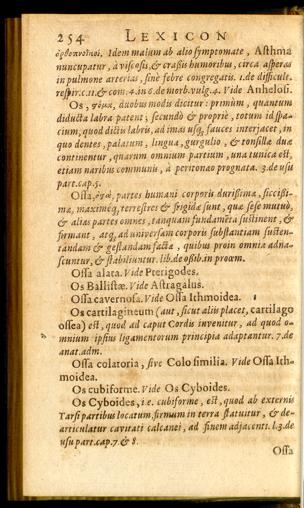 254 LEXICON
ὀρθοπνοϊκοὶ. Idem malum ab alio symptomate, Asthma
nuncupatur, à viscosis, & crassis humoribus, circa asperas
in pulmone arterias, sine febre congregatis. 1.de difficult.
respir.c.11.& com.4.in 6.de morb.vulg.4. Vide Anhelosi.
Os, στόμα, duobus modis dicitur: primùm, quantum
diducta labra patent; secundò & propriè, totum id spa-
cium, quod dictis labris, ad imas usq, fauces interjacet, in
quo dentes, palatum, lingua, gurgulio, & tonsillæ duæ
continentur, quarum omnium partium, una tunica est,
etiam naribus communis, à peritonæo prognata. 3.de usu
part.cap.5.
Ossa, ὀστᾶ, partes humani corporis durissimæ, siccissi-
mæ, maximéq, terrestres & frigidæ sunt, quæ sese mutuò,
& alias partes omnes, tanquam fundamēta sustinent, &
firmant, atq, ad universam corporis substantiam susten-
tandam & gestandam facta, quibus proin omnia adna-
scuntur, & stabiliuntur. lib.de ossib.in proœm.
Ossa alata. Vide Pterigodes.
Os Ballistæ. Vide Astragalus.
Ossa cavernosa. Vide Ossa Ithmoidea.
Os cartilagineum (aut, sicut aliis placet, cartilago
ossea) est, quod ad caput Cordis invenitur, ad quod o-
mnium ipsius ligamentorum principia adaptantur. 7.de
anat.adm.
Ossa colatoria, sive Colo similia. Vide Ossa Ith-
moidea.
Os cubiforme. Vide Os Cyboides.
Os Cyboides, i.e. cubiforme, est, quod ab externis
Tarsi partibus locatum, firmum in terra statuitur, & de-
articulatur cavitati calcanei, ad finem adjacenti. l.3.de
usu part.cap.7.& 8.
Ossa